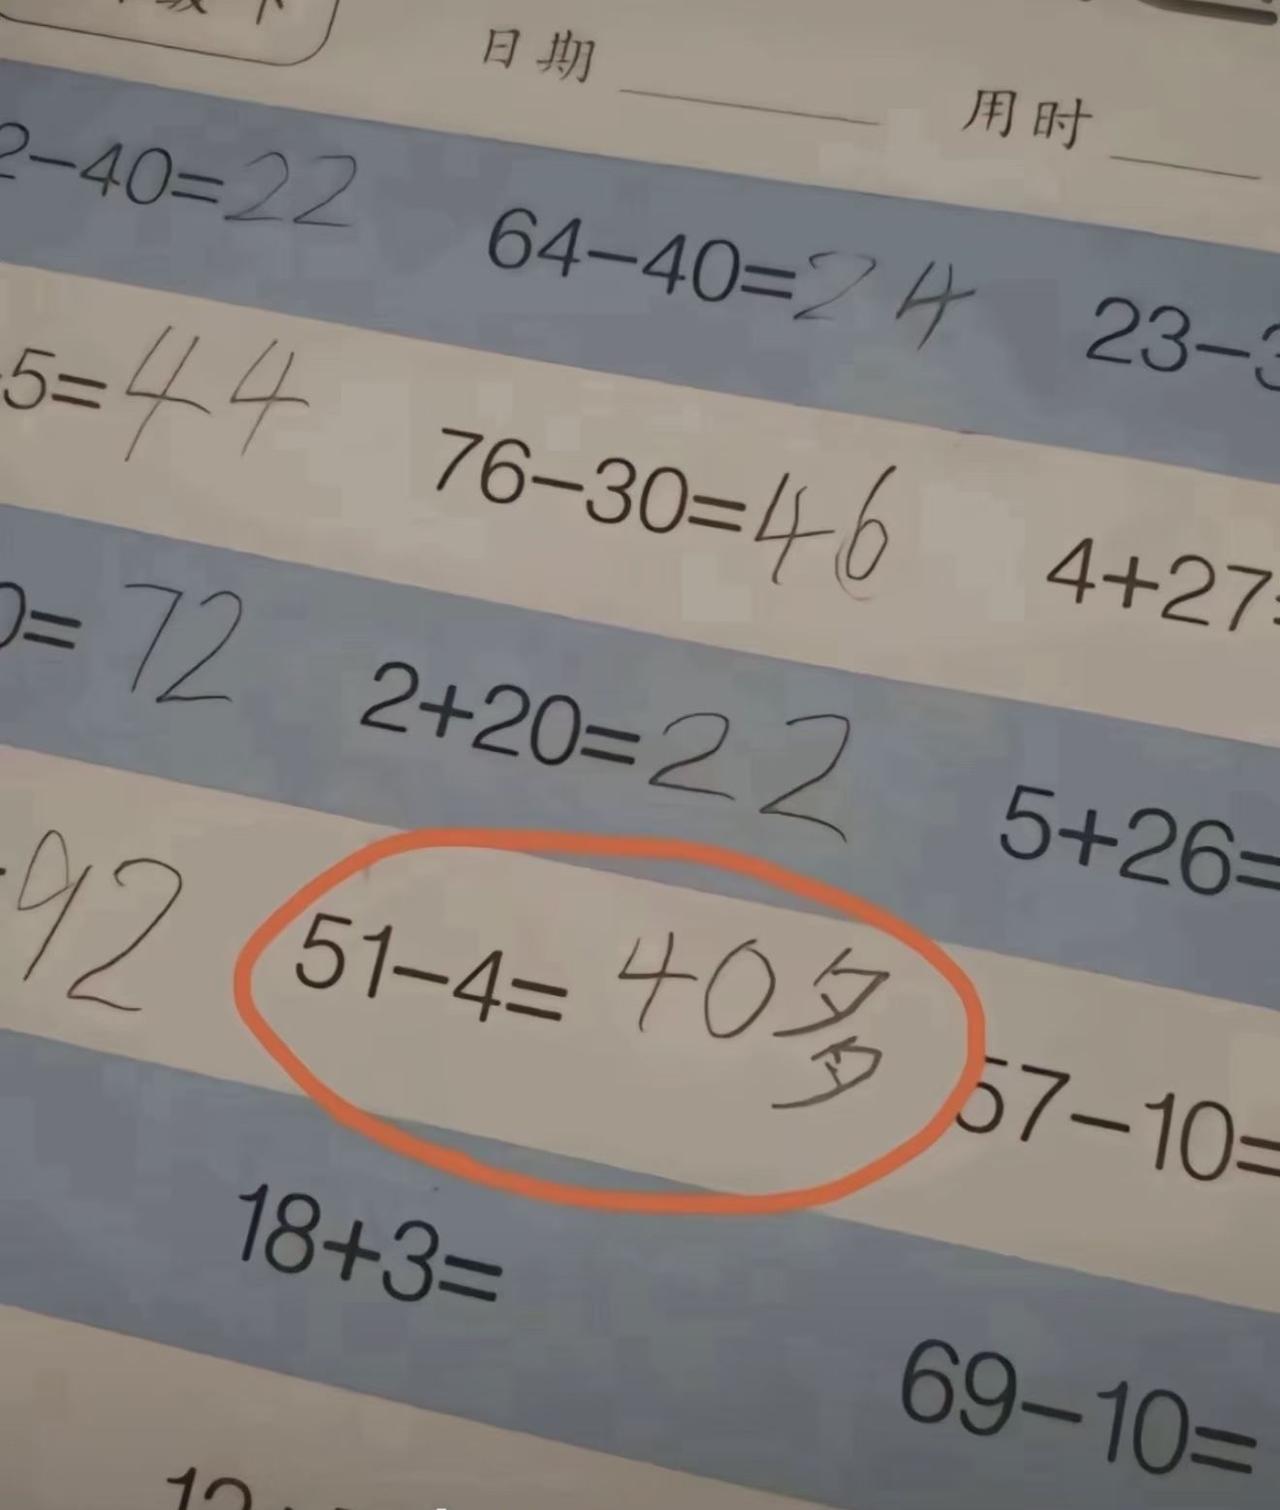 日期 用时
2-40=22 64-40=24 23-3
5=44 76-30=46 4+27
0=72 2+20=22 5+26=
92 51-4=40多 57-10=
18+3= 69-10=